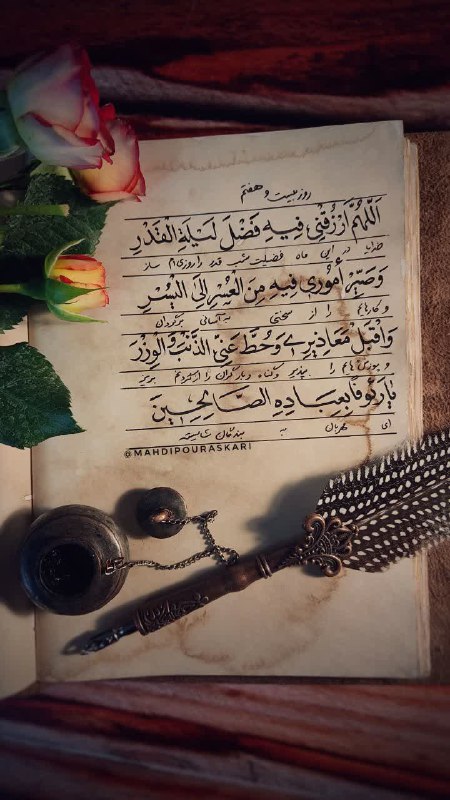 روز بیست و هفتم
اَللّهُمَّ ارْزُقْنی فیهِ فَضْلَ لَیْلَةِ الْقَدْرِ
خدایا در این ماه فضیلت شب قدر را روزی‌ام ساز
وَصَیِّرْ اُمُوری فیهِ مِنَ الْعُسْرِ اِلَی الْیُسْرِ
و کارهایم را از سختی به آسانی برگردان
وَاقْبَلْ مَعاذیری وَحُطَّ عَنِّی الذَّنْبَ وَالْوِزْرَ
و پوزش‌هایم را بپذیر و گناه و بار گران را از گرده‌ام بریز
یا رَئُوفاً بِعِبادِهِ الصّالِحینَ
ای مهربان به بندگان شایسته
@MAHDIPOURASKARI